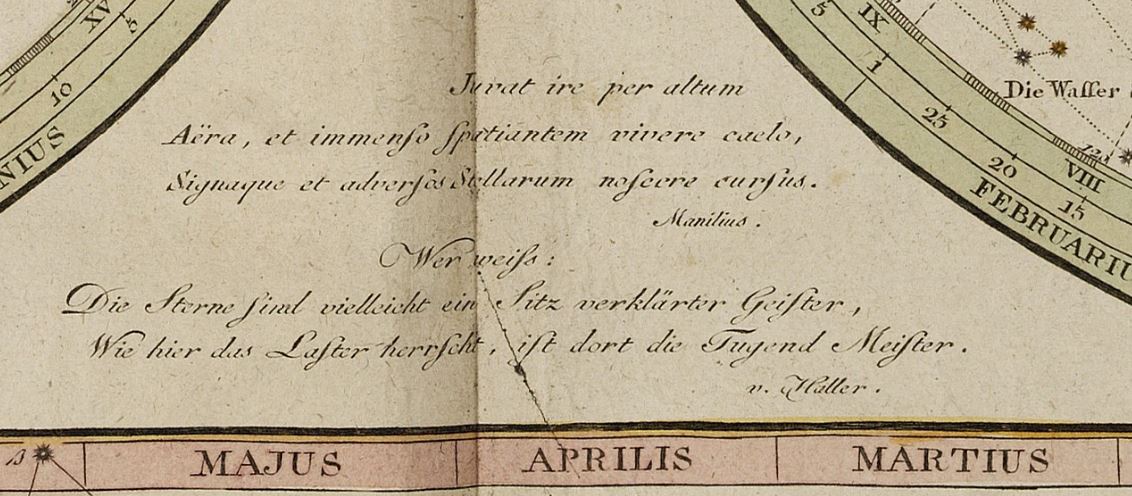 XV
5
10
NIUS
5
IX
1
25
20
VIII
15
FEBRUARIU
Die Waſſer
Juvat ire per altum
Aëra, et immenſo ſpatiantem vivere caelo,
Signaque et adverſos Stellarum noſcere curſus.
Manilius.
Wer weiſs:
Die Sterne ſind vielleicht ein Sitz verklärter Geiſter,
Wie hier das Laſter herrſcht, iſt dort die Tugend Meiſter.
v. Haller.
MAJUS
APRILIS
MARTIUS